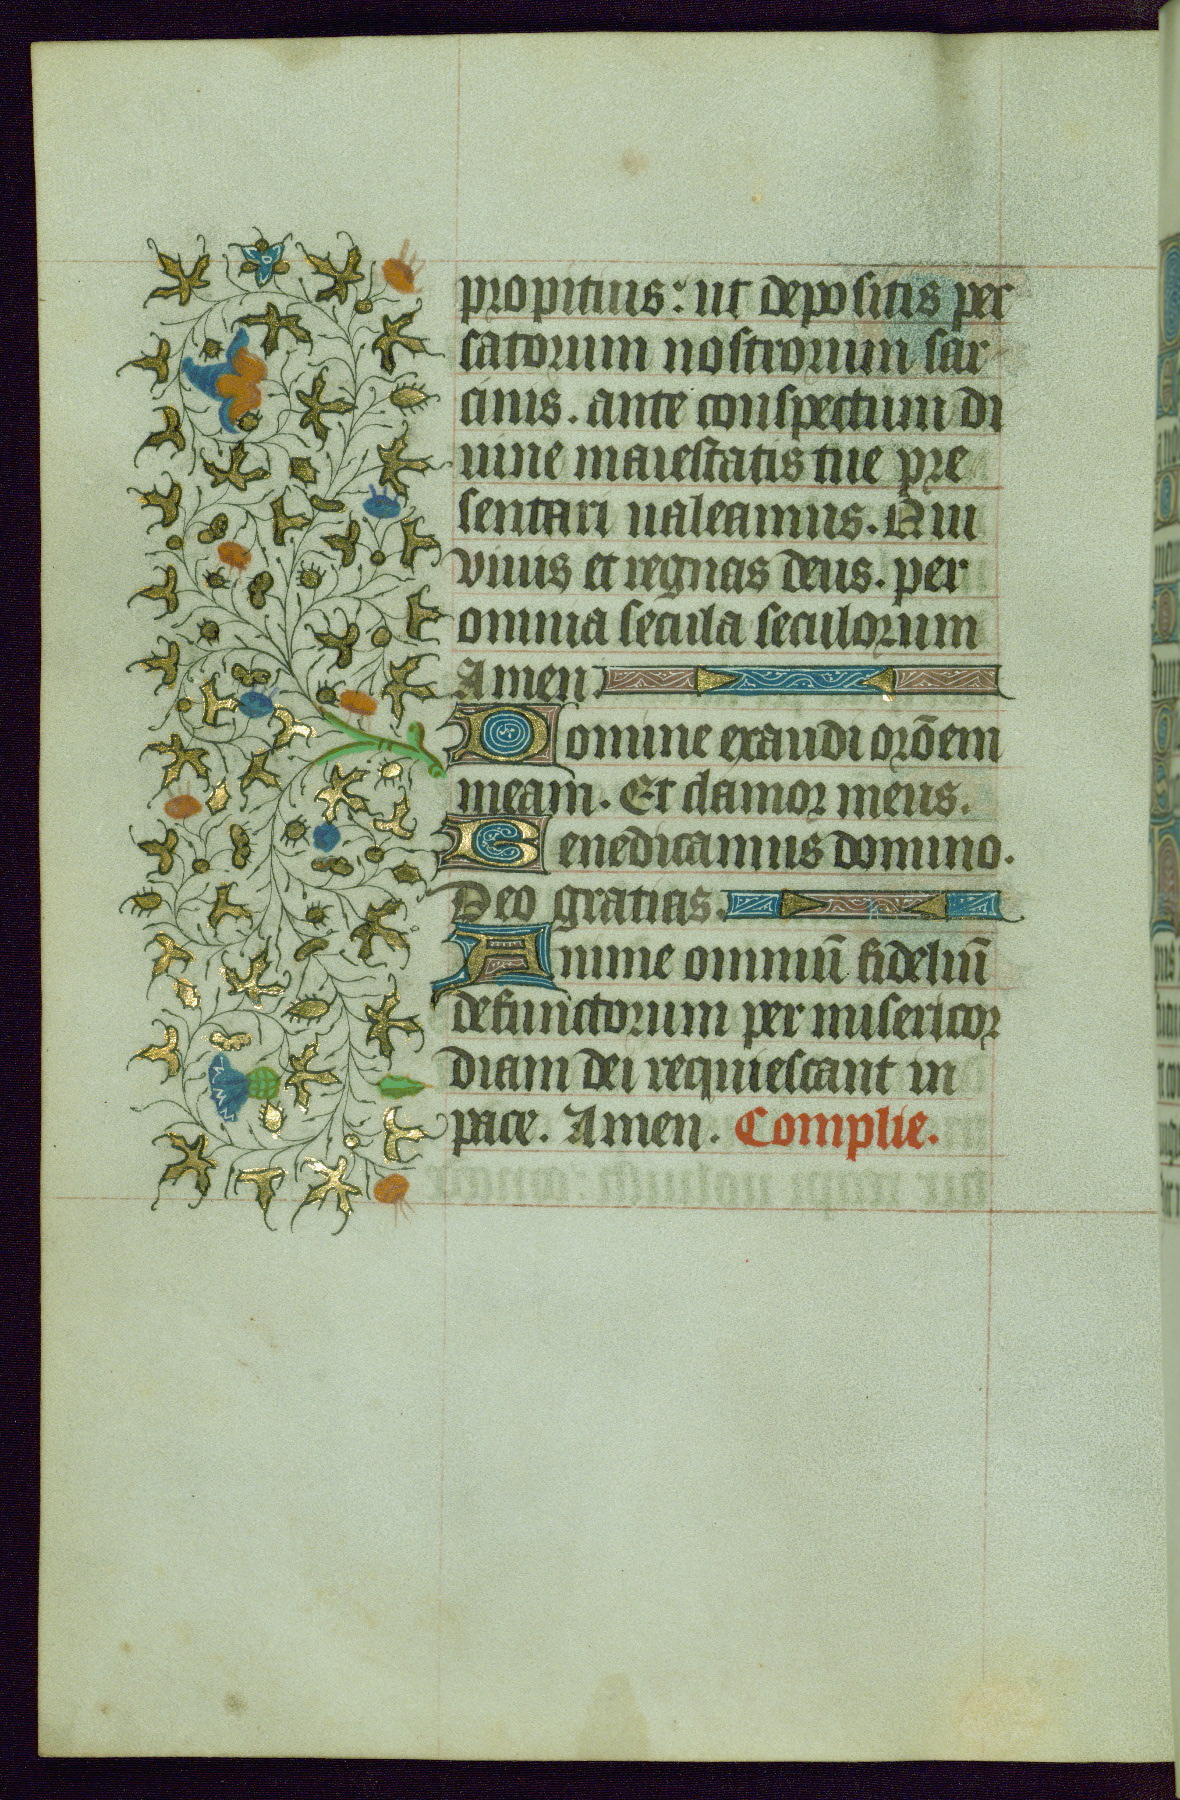 propitius: ut depositis pec
catorum nostrorum sar
cinis. ante conspectum di
uine maiestatis tue pre
sentari ualeamus. Qui
viuis et regnas deus. per
omnia secula seculorum
Amen
Domine exaudi or̄oēm
meam. Et clamor meus.
Benedicamus domino.
Deo gratias.
Anime omniū fideliū
defunctorum per misericor
diam dei requiescant in
pace. Amen. Complie.